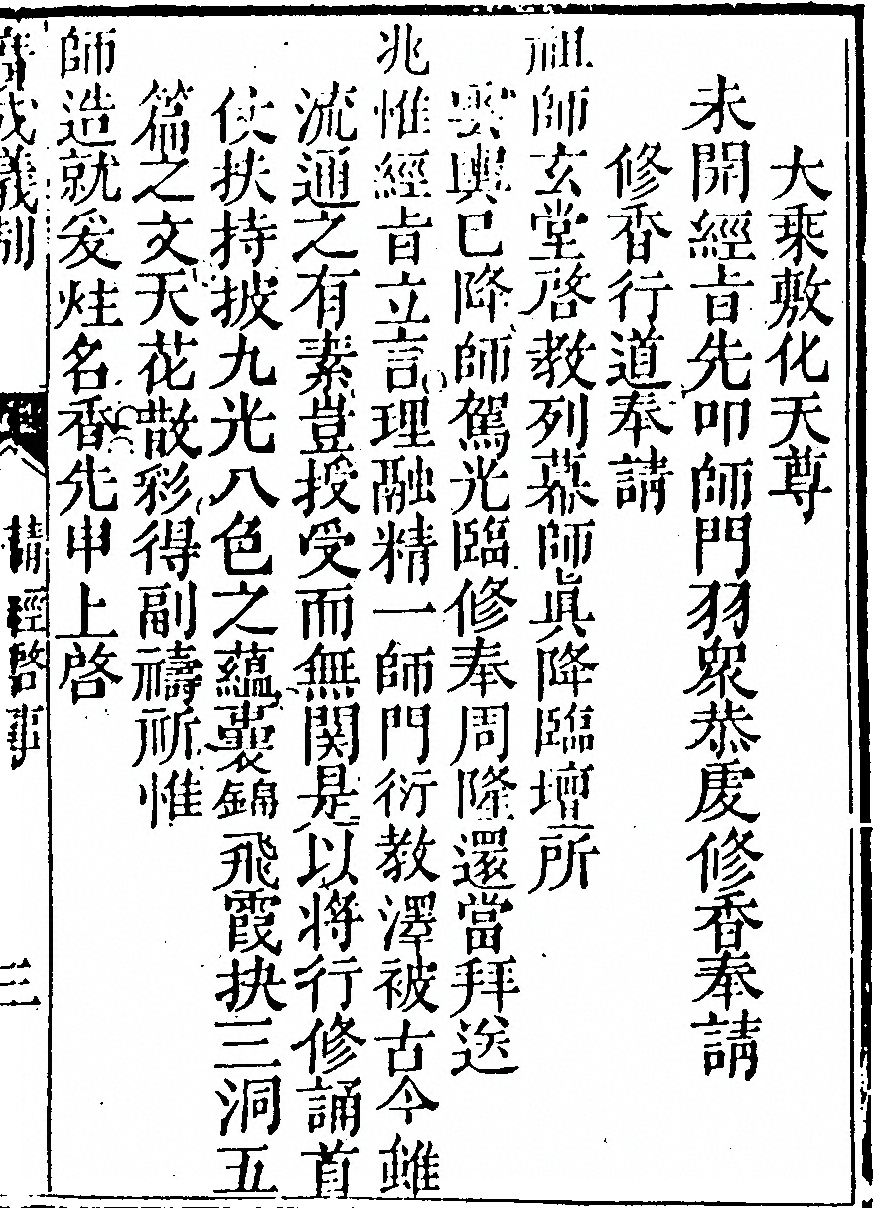 大乘敷化天尊
未開經旨先叩師門羽衆恭虔修香奉請
修香行道奉請
祖師玄堂啓教列幕師眞降臨壇所
雲輿已降師駕光臨修奉周隆還當拜送
兆惟經旨立言理融精一師門衍教澤被古今雖
流通之有素豈授受而無関是以將行修誦首
仗扶持披九光八色之蘊囊錦飛霞抉三洞五
篇之文天花散彩得副禱祈惟
師造就爰炷名香先申上啓
成儀制
請經啓事
三